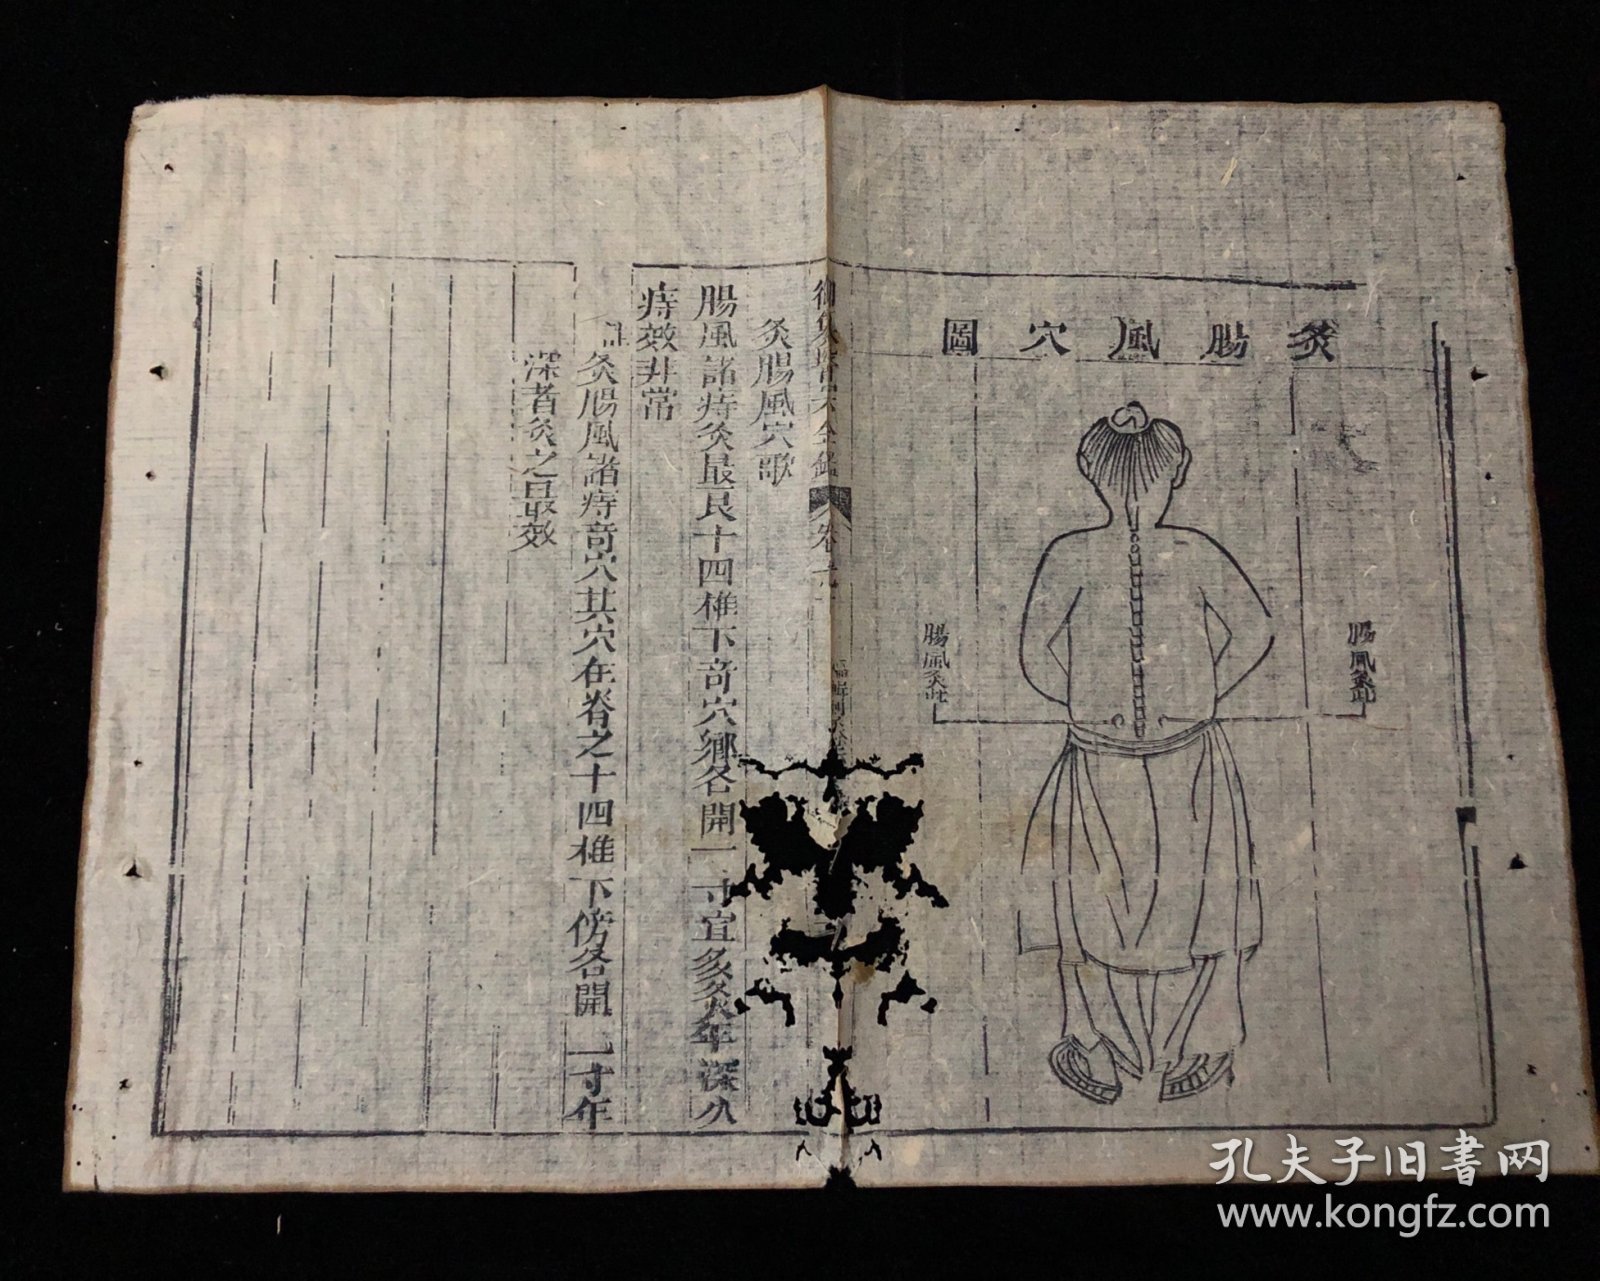 灸腸風穴圖
腸風灸此
腸風灸此
灸腸風穴歌
腸風諸痔灸最良十四椎下奇穴鄉各開一寸宜多灸年深久
痔效非常
灸腸風諸痔奇穴其穴在脊之十四椎下傍各開一寸年
深者灸之最效
孔夫子旧书网
www.kongfz.com